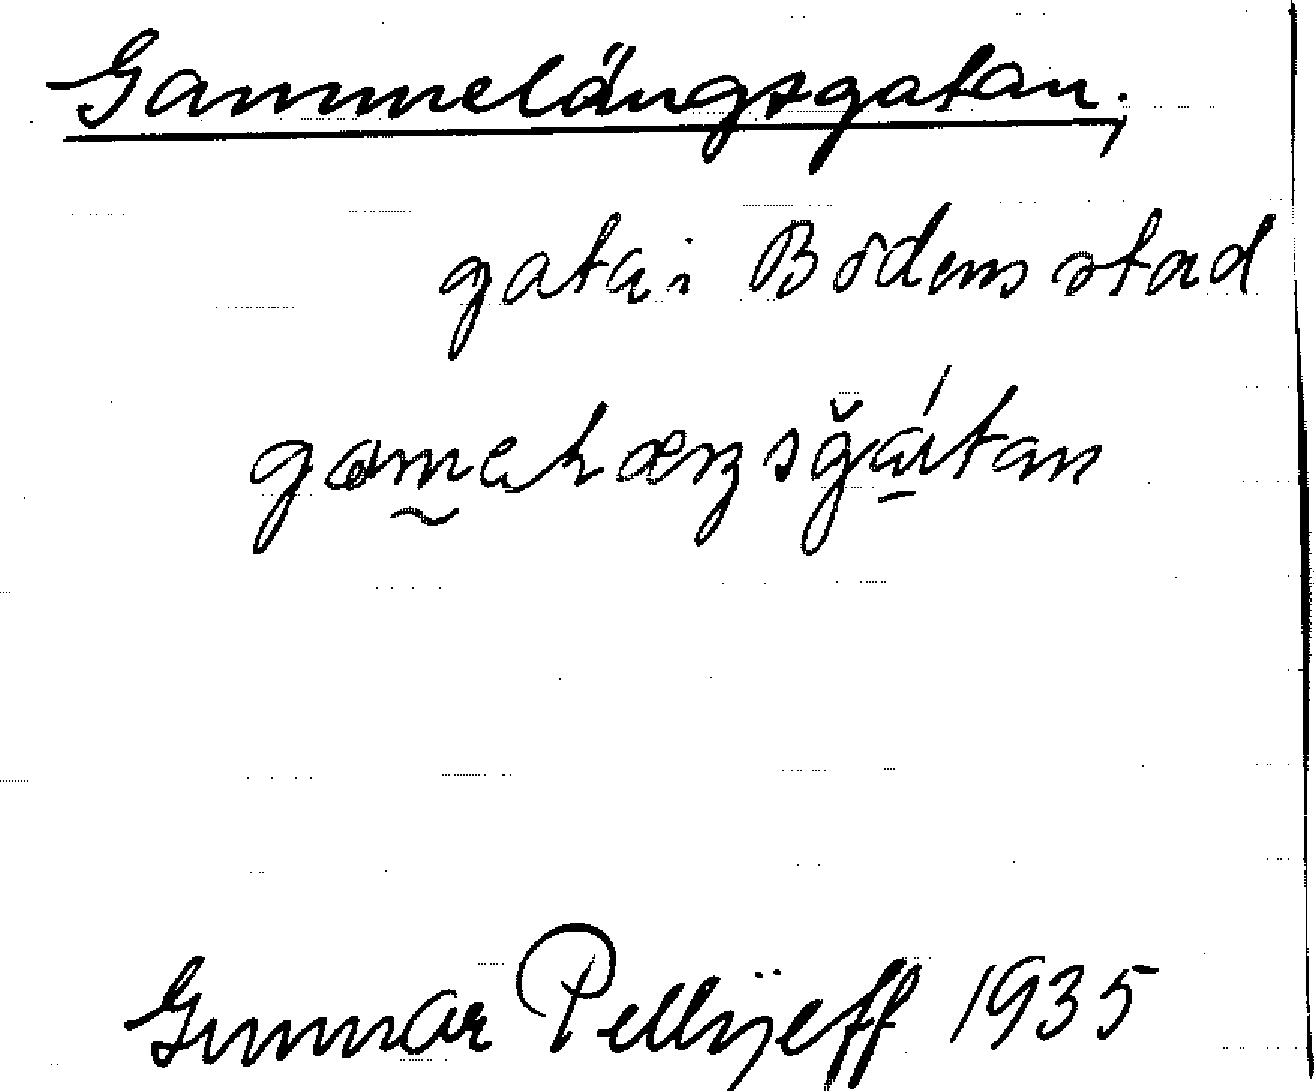 Gammelängsgatan,
gata i Bodens stad
Gunnar Pellijeff 1935